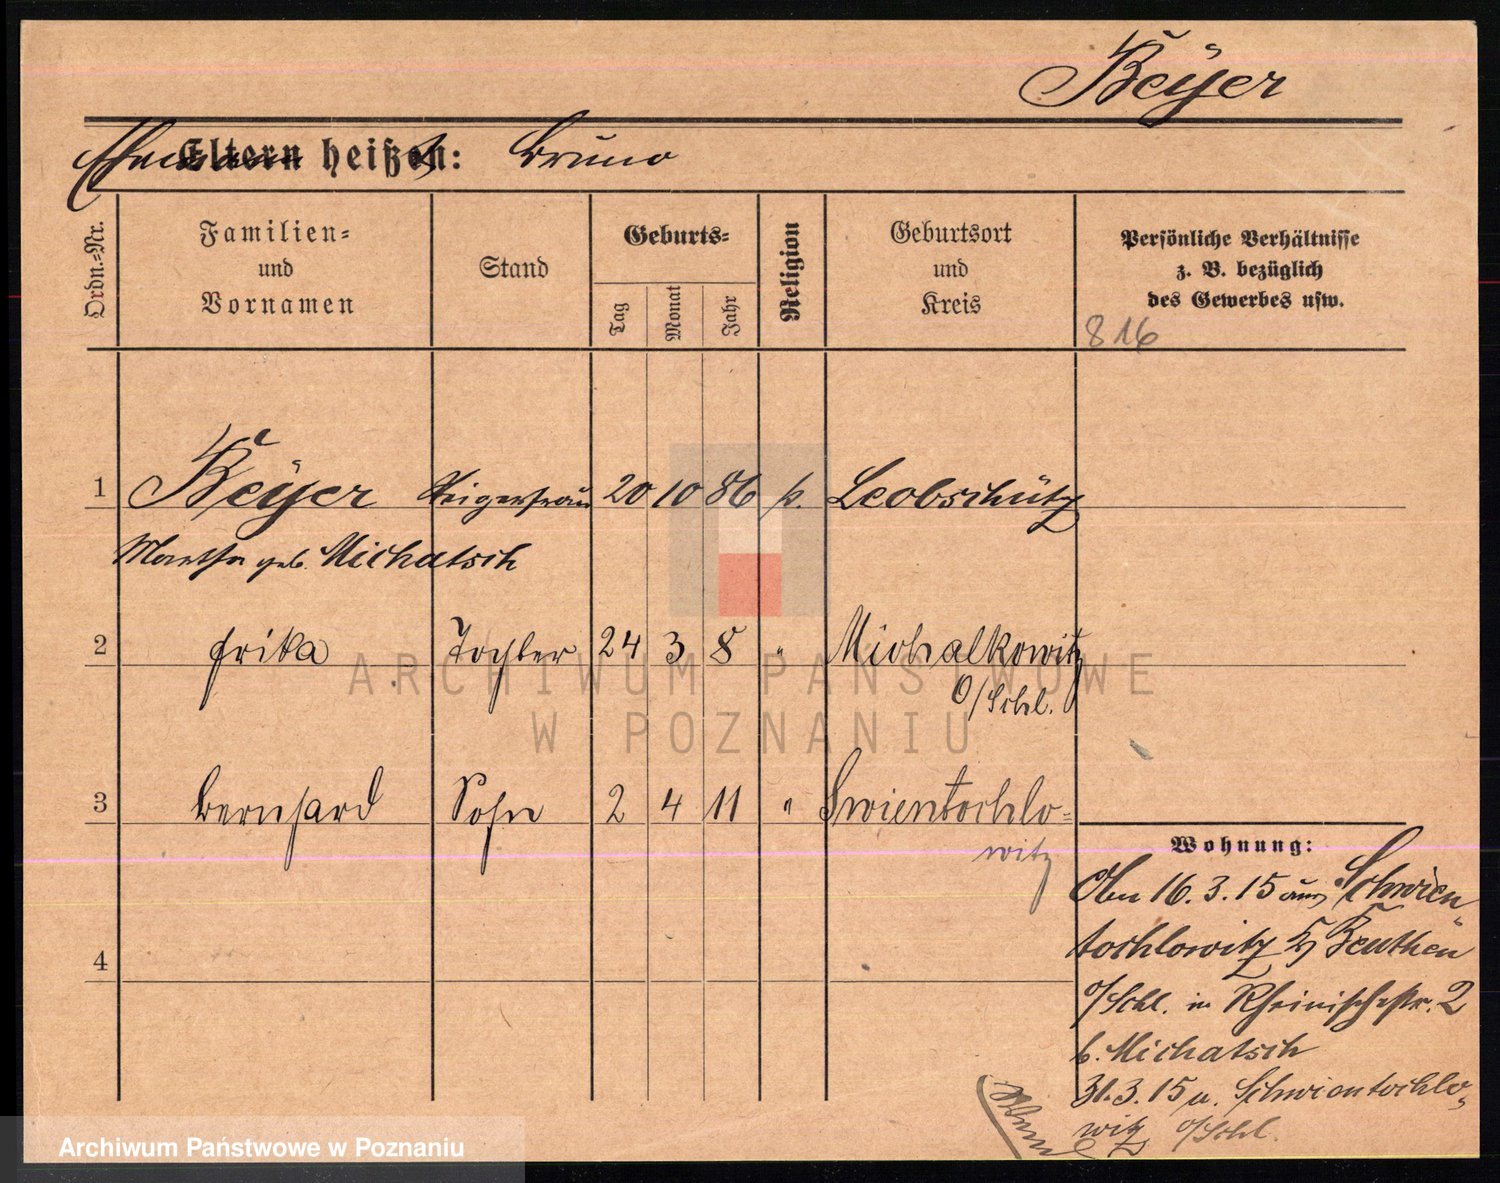 Beÿer
Ehemann heißt: Bruno
Ordn.-Nr.
Familien-
und
Vornamen
Stand
Geburts-
Tag
Monat
Jahr
Religion
Geburtsort
und
Kreis
Persönliche Verhältnisse
z. B. bezüglich
des Gewerbes usw.
816
1 Beÿer Steigersfrau 20 10 86 k. Leobschütz
Martha geb. Michatsch
2 Erika Tochter 24 3 8 " Michalkowitz
O/Schl.
3 Bernhard Sohn 2 4 11 " Swientochlo-
witz
4
Wohnung:
16.3.15 aus Schwien-
tochlowitz Beuthen
o/Schl. in Rheinischestr. 2
b. Michatsch
31.3.15 n. Schwientochlo-
witz o/Schl.
ARCHIWUM PAŃSTWOWE
W POZNANIU
Archiwum Państwowe w Poznaniu